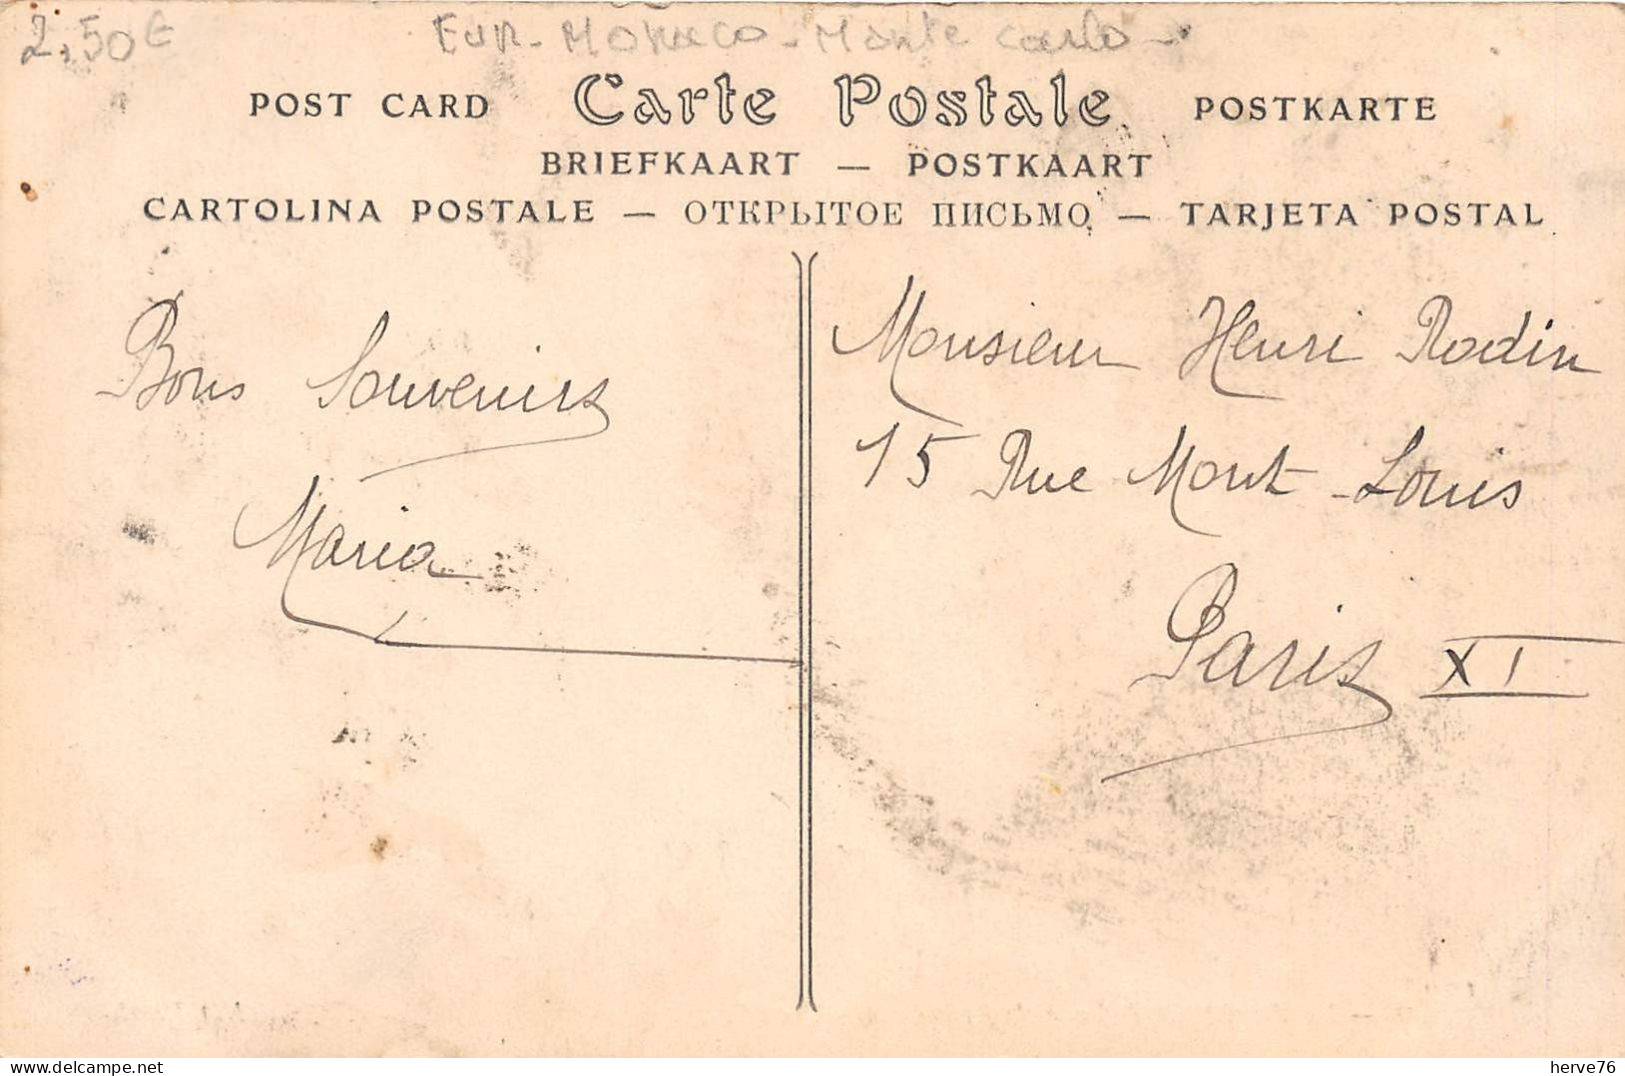 2,50€ Eur - Monaco - Monte Carlo -
POST CARD Carte Postale POSTKARTE
BRIEFKAART — POSTKAART
CARTOLINA POSTALE — ОТКРЫТОЕ ПИСЬМО — TARJETA POSTAL
Bons Souvenirs
Maria
Monsieur Henri Rodin
15 Rue Mont-Louis
Paris XI
herve76